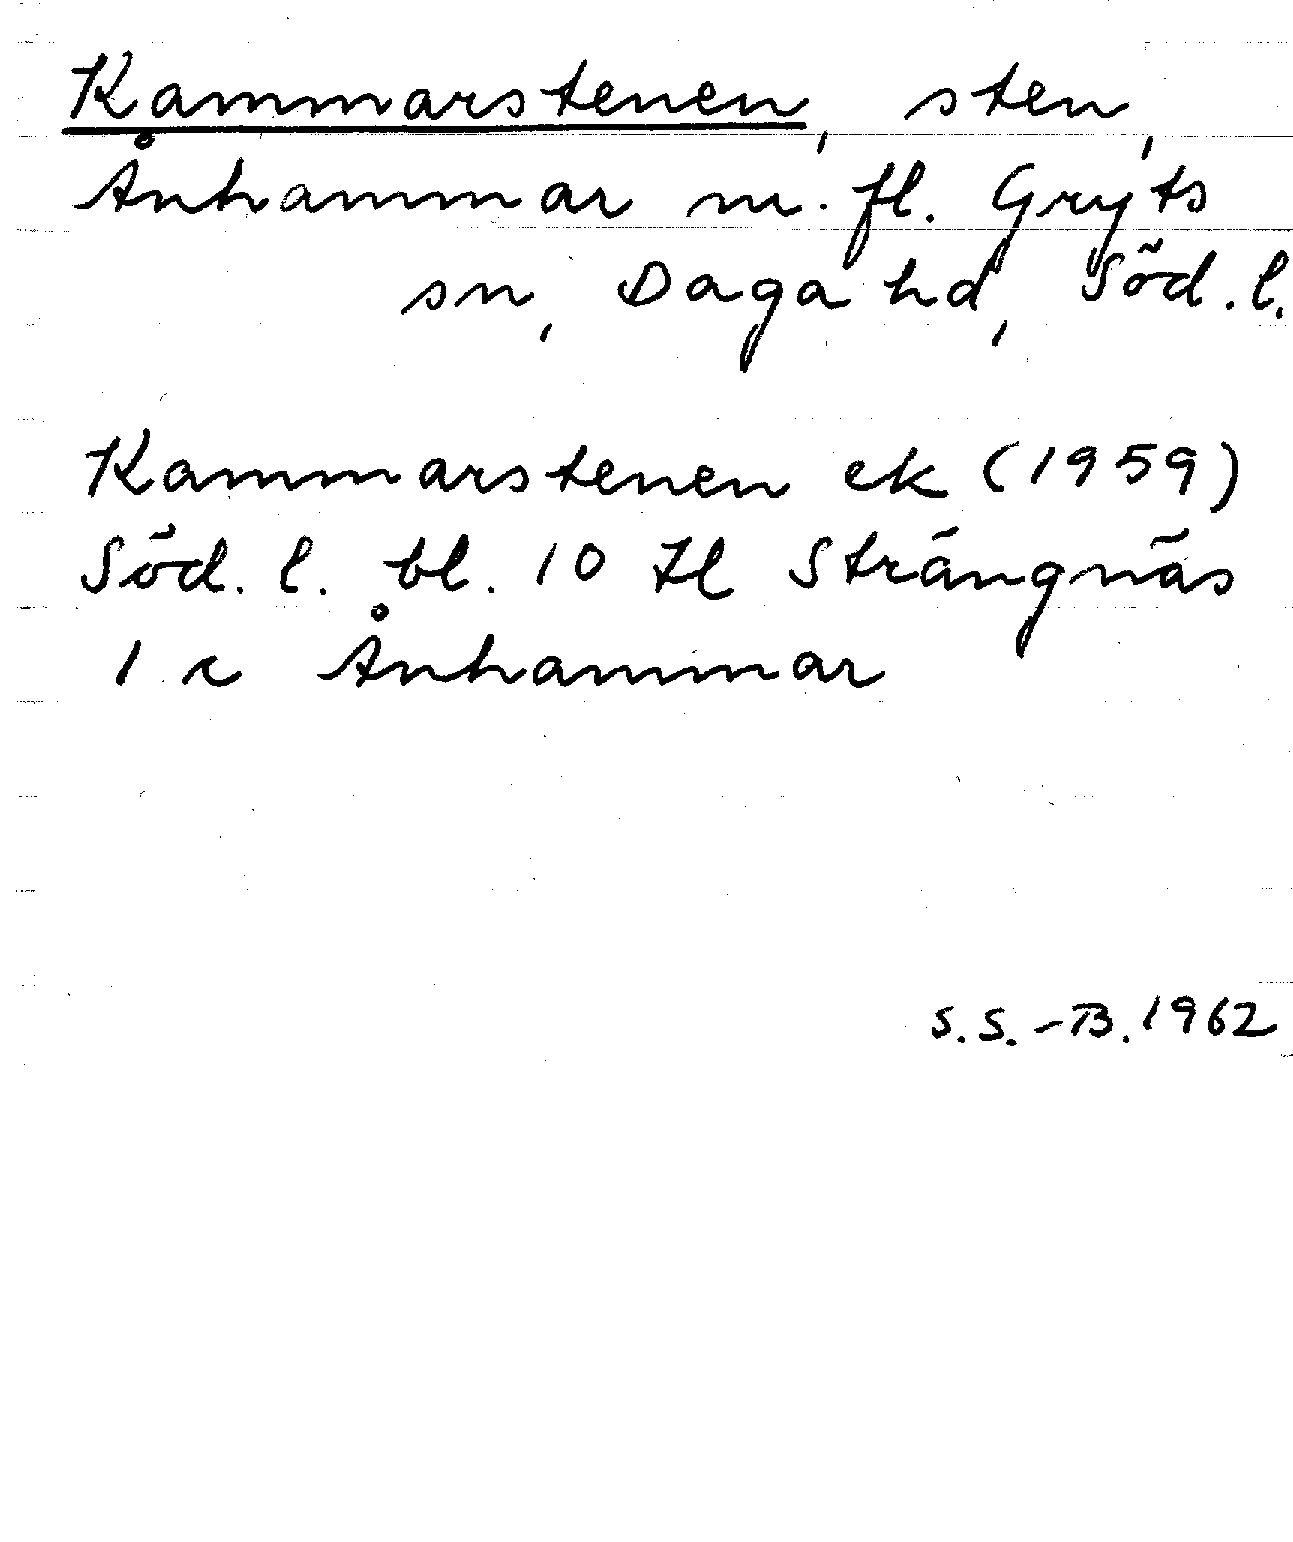 Kammarstenen, sten,
Ånhammar m. fl. Gryts
sn, Daga hd, Söd. l.
Kammarstenen ek (1959)
Söd. l. bl. 10 Il Strängnäs
1 c Ånhammar
S. S. -B. 1962